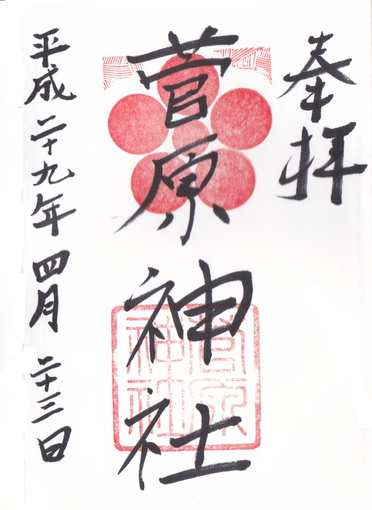 奉拝
菅原神社
菅原
神社
平成二十九年四月二十三日